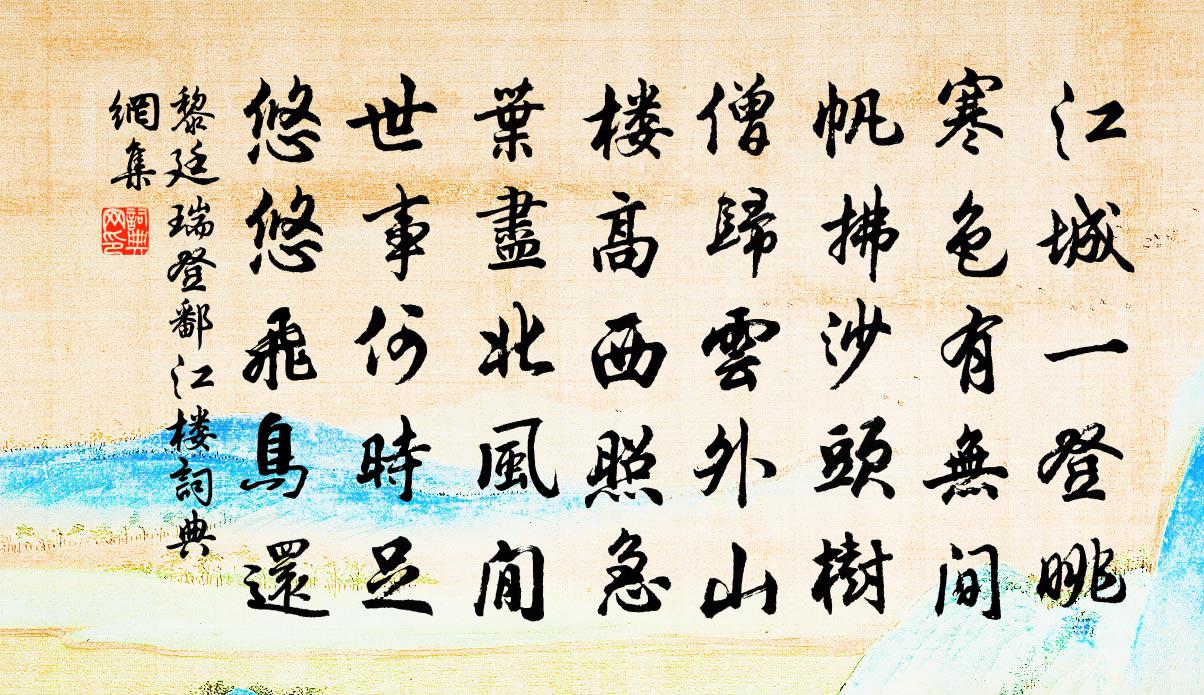 江城一登眺
寒色有無間
帆拂沙頭樹
僧歸雲外山
楼高西照急
葉盡北風閒
世事何時足
悠悠飛鳥還
黎廷瑞登鄱江楼詞典
網集
詞典網印